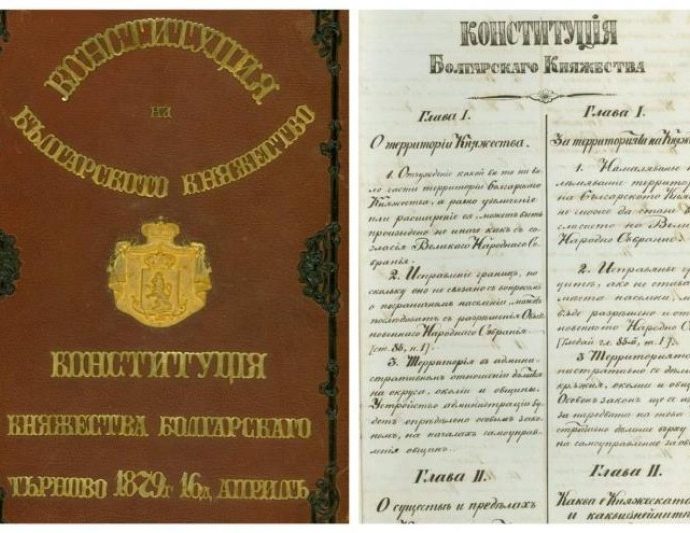 КОНСТИТУЦИЯ
НА
БЪЛГАРСКОТО КНЯЖЕСТВО
КОНСТИТУЦІЯ
КНЯЖЕСТВА БОЛГАРСКАГО
ТЪРНОВО 1879г 16д АПРИЛЪ
КОНСТИТУЦІЯ
БОЛГАРСКАГО КНЯЖЕСТВА
Глава I.
О территоріи Княжества.
1. Отчужденіе какой бы то ни бы
ло части территоріи Болгарскаго
Княжества, а равно увеличеніе
или расширеніе ея, можетъ быть
произведено не иначе какъ съ со
гласія Великаго Народнаго Со
бранія.
2. Исправленіе границъ, по
скольку оно не связано съ вопросомъ
о пограничномъ населеніи,
съ разрѣшенія
Народнаго Собранія
[ст. 85, п. 1].
3. Территорія въ админи
стративномъ отношеніи дѣлится
на округа, околіи и общины.
Устройство администраціи бу
детъ опредѣлено особымъ зако
номъ, на началахъ самоуправ
ленія общинъ.
Глава II.
О существѣ и предѣлахъ
Глава I.
За территорията на Княж
1.
территор
на Българското Княж
не може да стане
съгласието на В
Народно Събрание
2. Исправяне
ако не става
мѣста населени,
бѫде разрѣшено и от
Народно С
3 Територията
стративно се дѣли
околии и общ
Особен закон ще се
за наредбата на това
дѣление върху
на самоуправление за общ
Глава II.
Каква е Княжеската
и